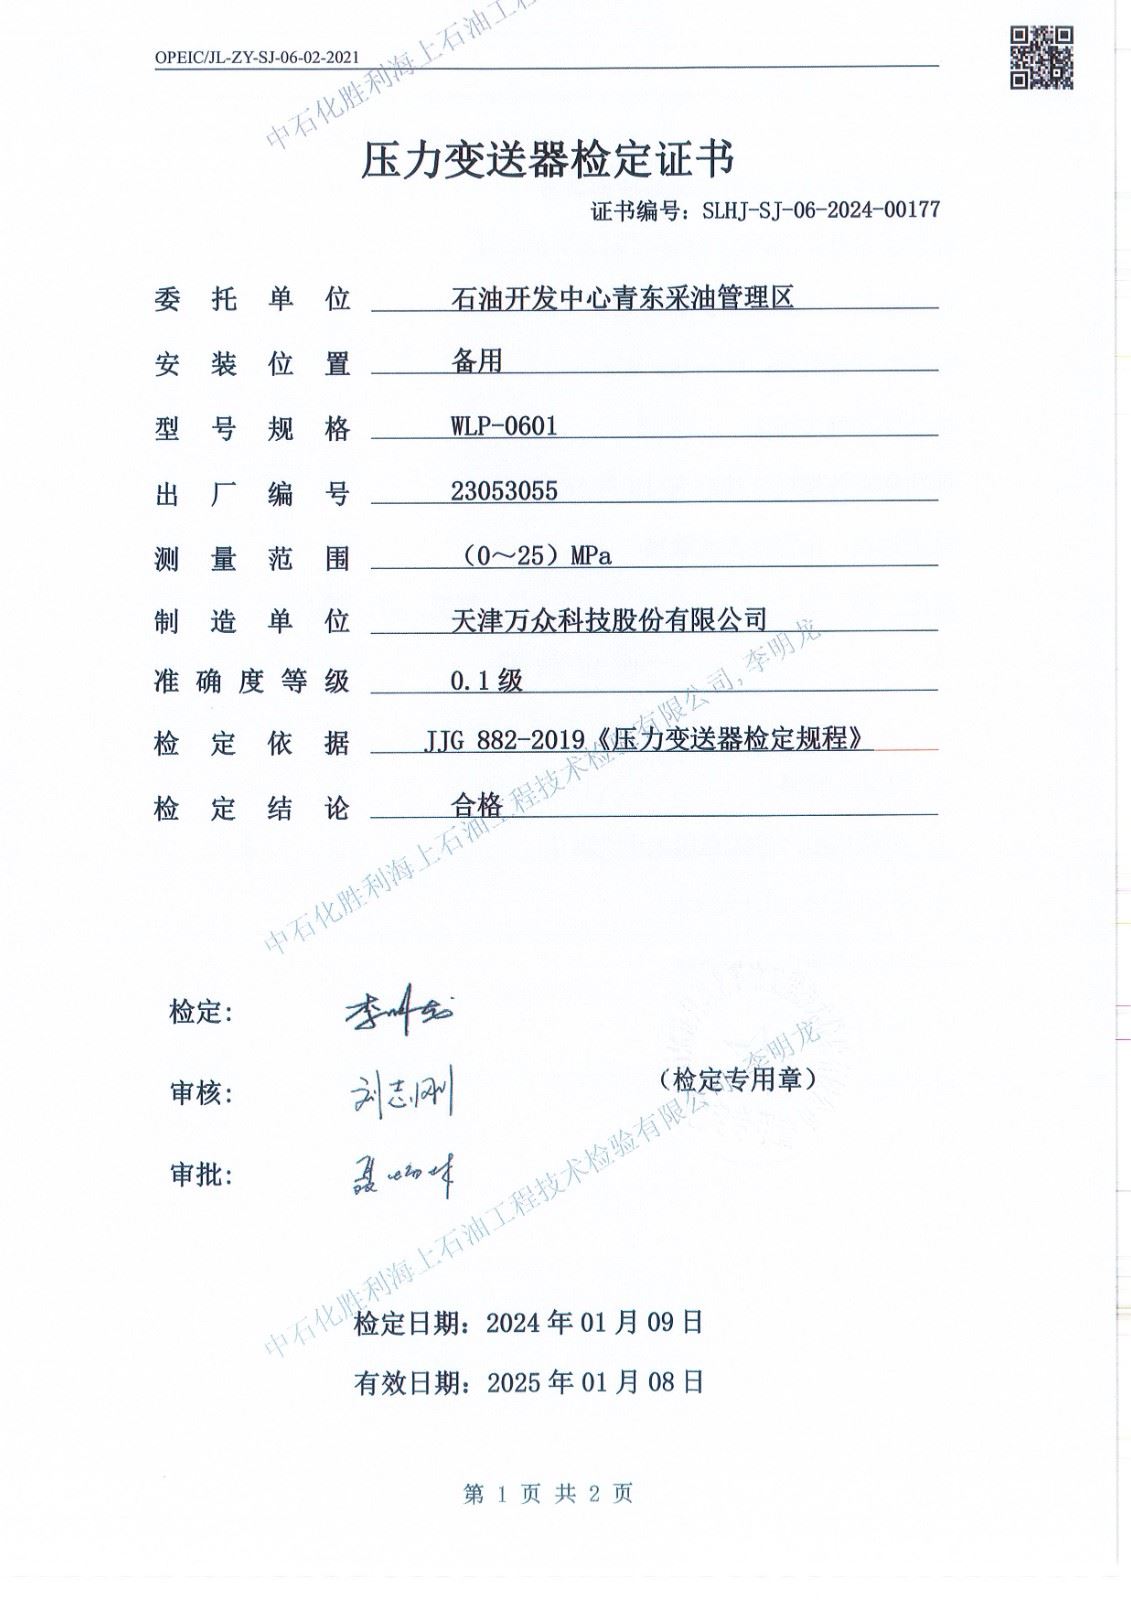 OPEIC/JL-ZY-SJ-06-02-2021
中石化胜利海上石油工
压力变送器检定证书
证书编号：SLHJ-SJ-06-2024-00177
委托单位 石油开发中心青东采油管理区
安装位置 备用
型号规格 WLP-0601
出厂编号 23053055
测量范围 （0～25）MPa
制造单位 天津万众科技股份有限公司
准确度等级 0.1级
检定依据 JJG 882-2019《压力变送器检定规程》
检定结论 合格
中石化胜利海上石油工程技术检验有限公司，李明龙
检定： 李明龙
审核： 刘志刚
（检定专用章）
审批：
中石化胜利海上石油工程技术检验有限公司，李明龙
检定日期：2024年01月09日
有效日期：2025年01月08日
第 1 页 共 2 页